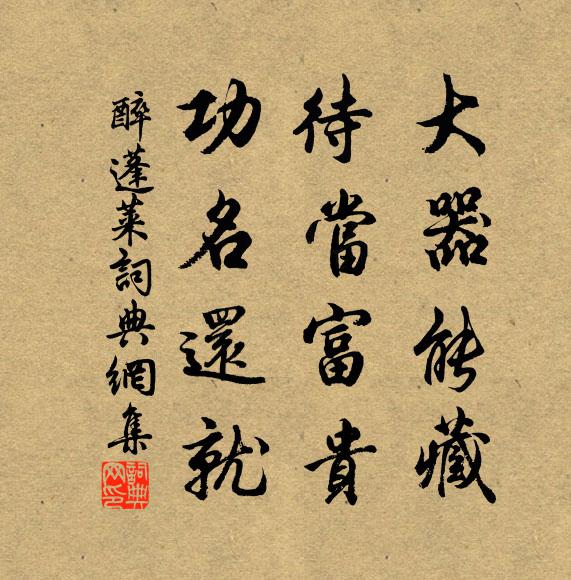 大器能藏
待當富貴
功名還就
醉蓬萊詞典網集
詞典网印